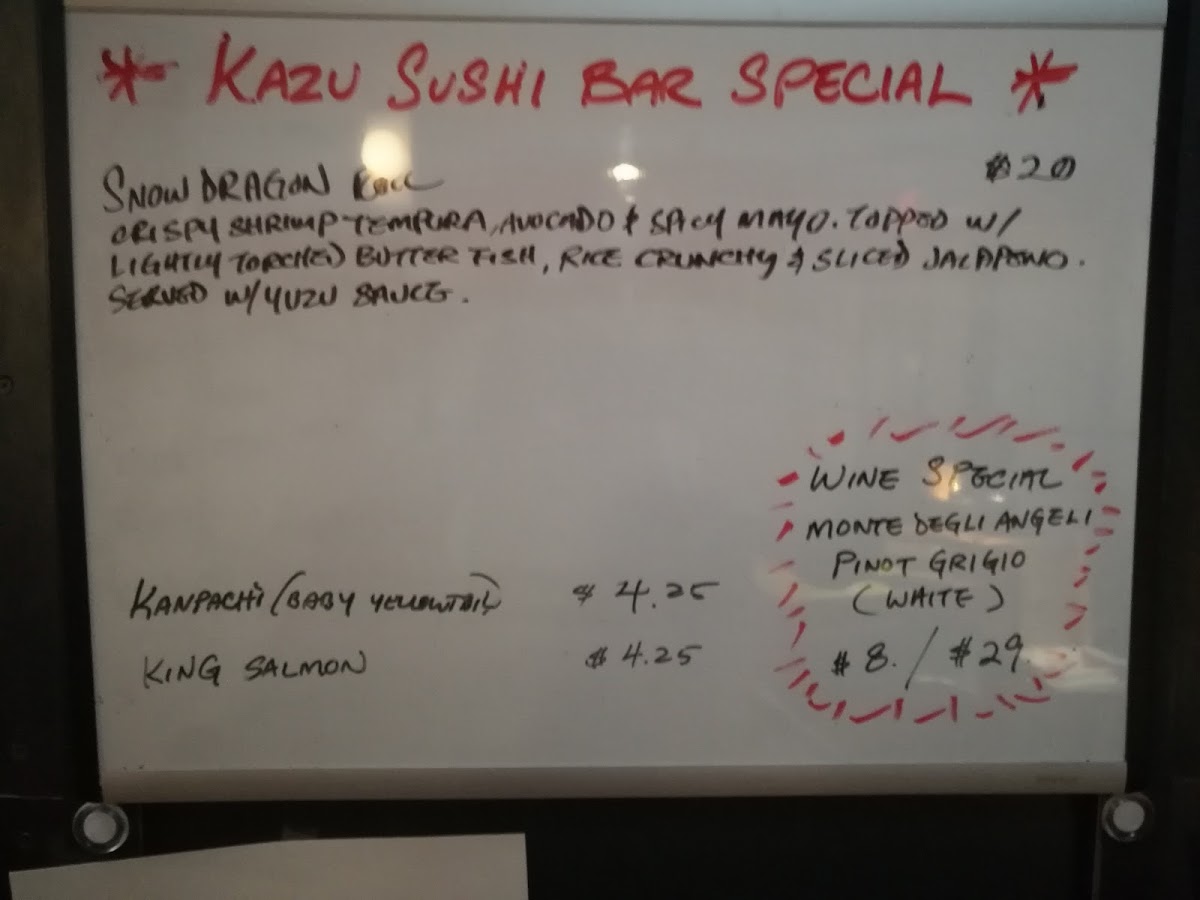 * KAZU SUSHI BAR SPECIAL *
SNOW DRAGON ROLL $20
CRISPY SHRIMP TEMPURA, AVOCADO & SPICY MAYO. TOPPED W/
LIGHTLY TORCHED BUTTER FISH, RICE CRUNCHY & SLICED JALAPPENO.
SERVED W/ YUZU SAUCE.
WINE SPECIAL
MONTE DEGLI ANGELI
PINOT GRIGIO
(WHITE)
$8. / $29.
KANPACHI (BABY YELLOWTAIL) $4.25
KING SALMON $4.25